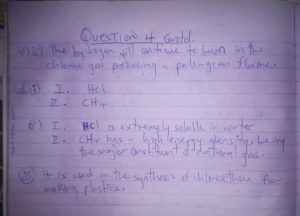 Question 4 Contd.
(c)(ii) The hydrogen will continue to burn in the
chlorine gas, producing a pale-green flame.
(d)(i) I. HCl
II. CH4
ii) I. HCl is extremely soluble in water
II. CH4 has a high energy density, being
the major constituent of natural gas.
It is used in the synthesis of chloroethene for
making plastics.